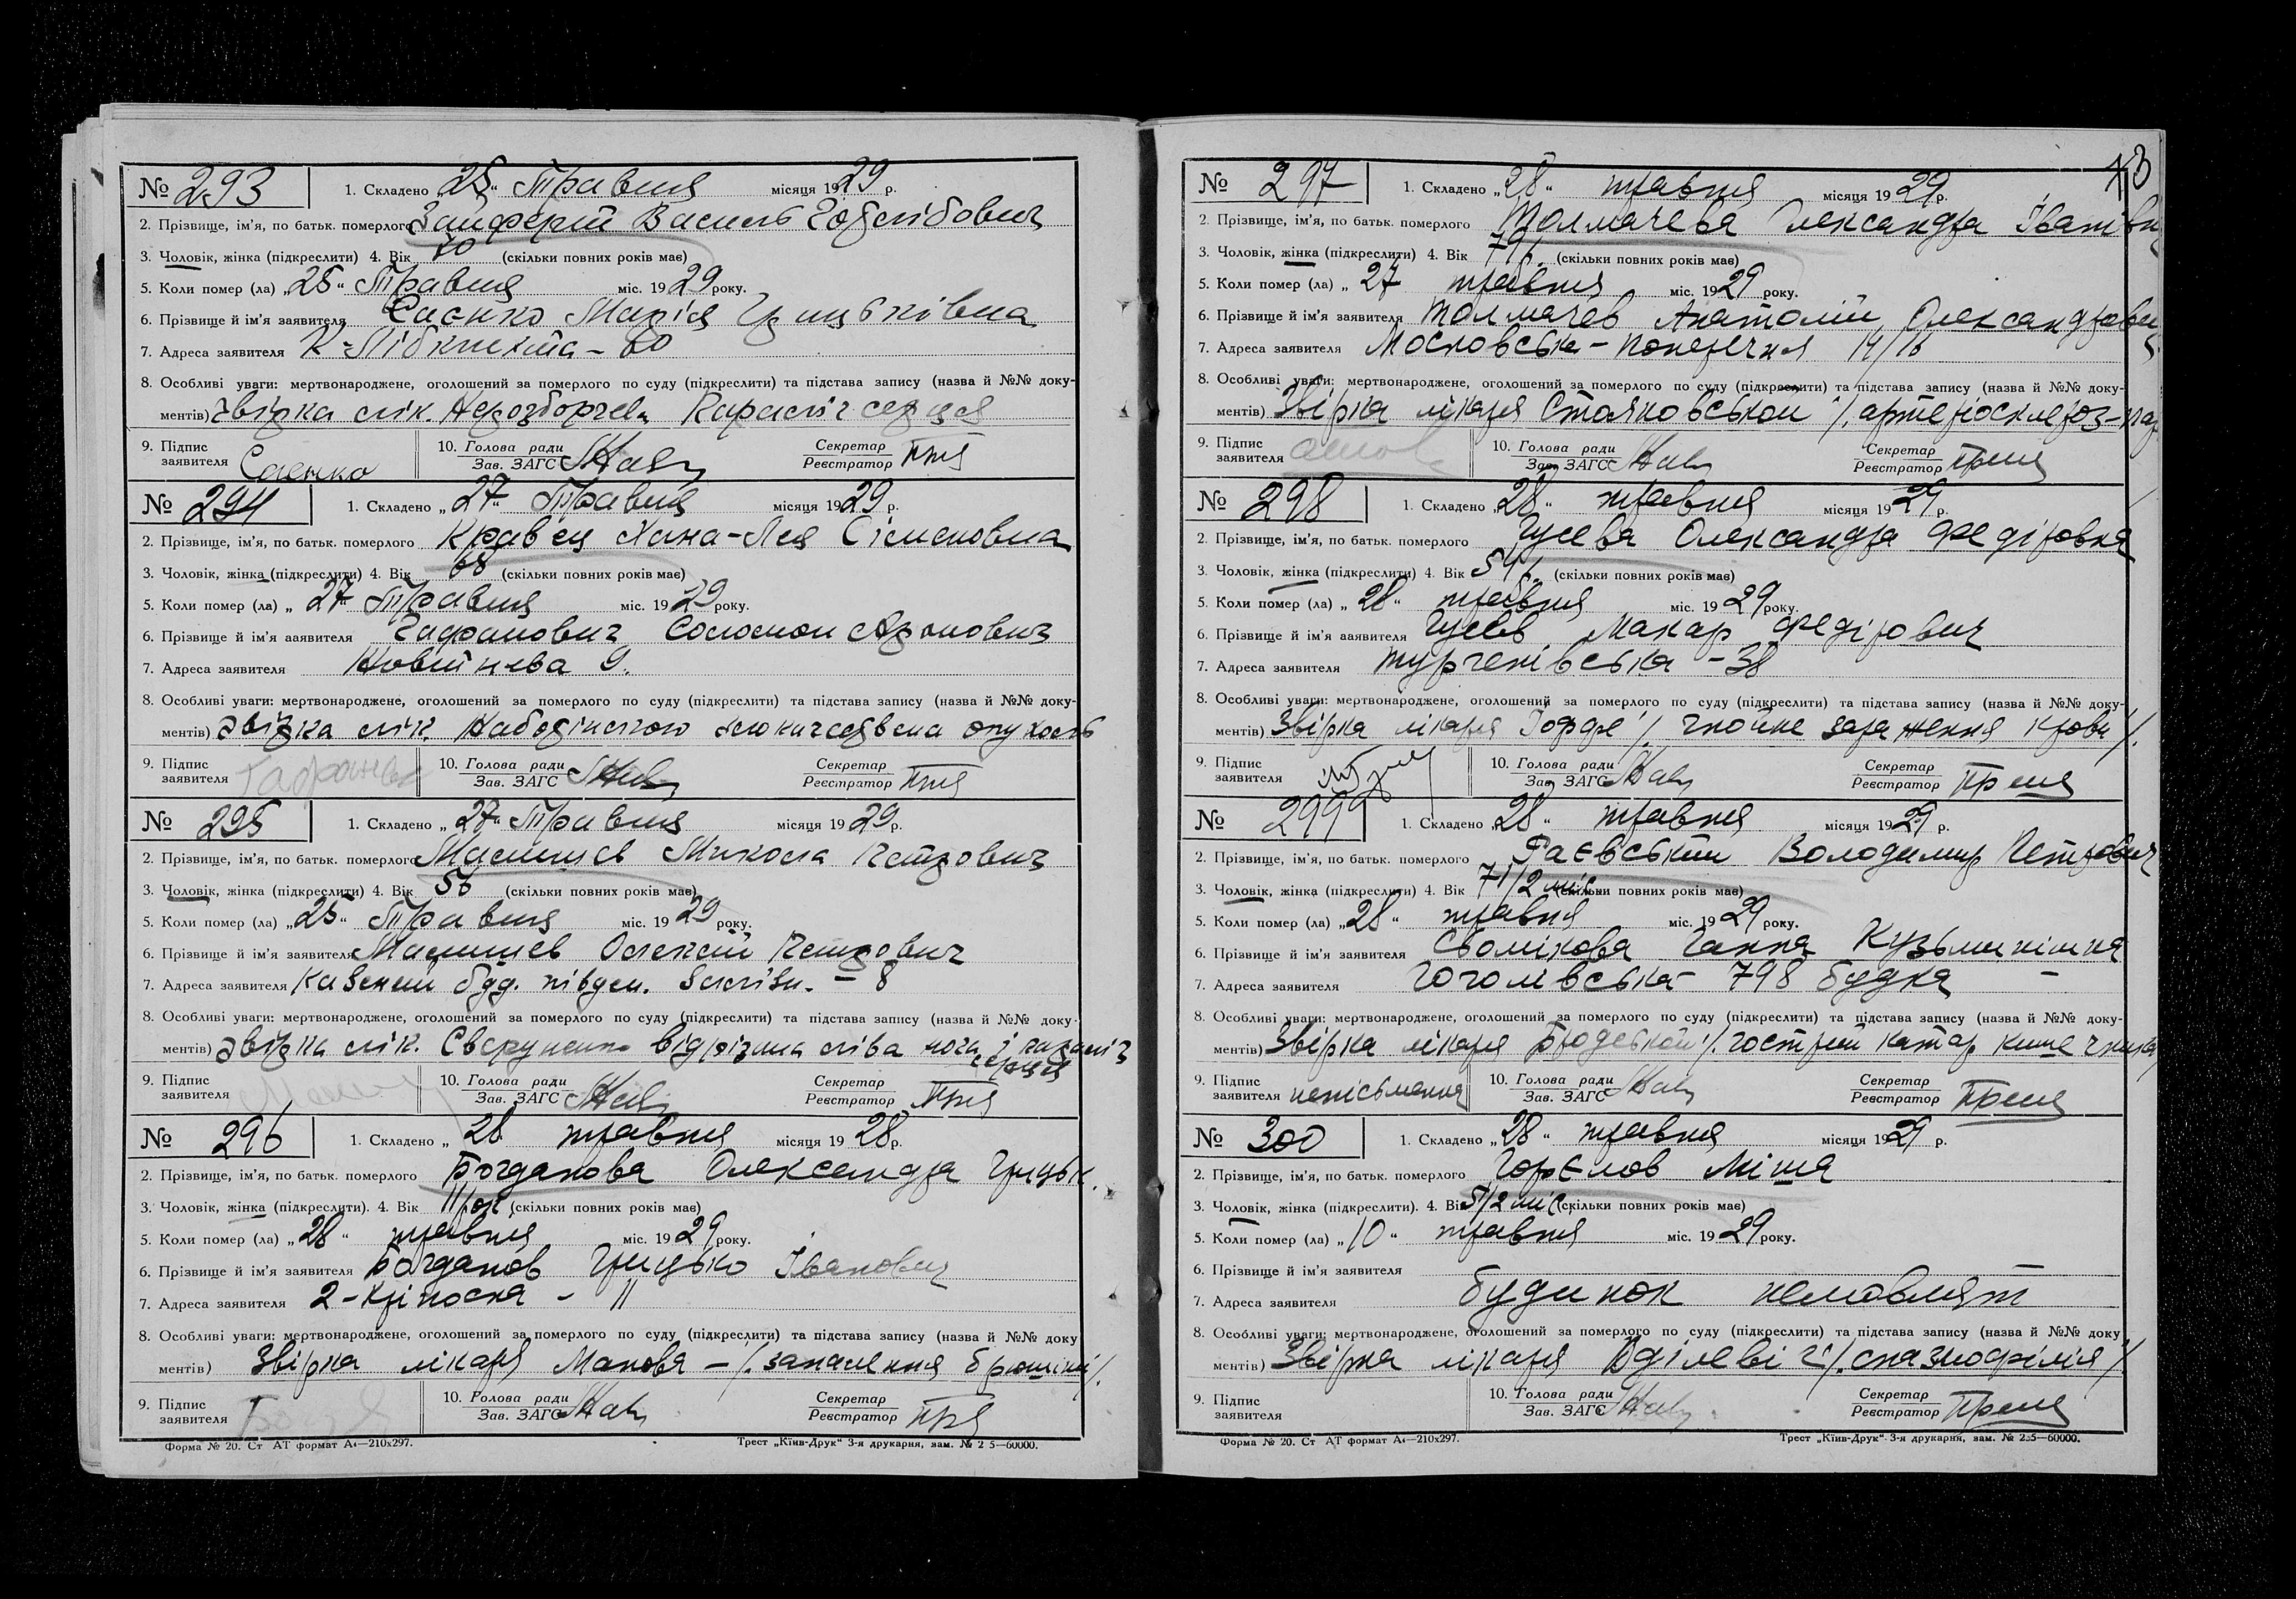 № 293 1. Складено „25“ Травня місяця 1929 р.
2. Прізвище, ім’я, по батьк. померлого Василь
3. Чоловік, жінка (підкреслити) 4. Вік 70 (скільки повних років має)
5. Коли помер (ла) „25“ Травня міс. 1929 року.
6. Прізвище й ім’я заявителя Саєнко Марія Грицьківна
7. Адреса заявителя К-Лібкнехта – 60
8. Особливі уваги: мертвонароджене, оголошений за померлого по суду (підкреслити) та підстава запису (назва й №№ доку-
ментів) звідка лік. Параліч серця
9. Підпис заявителя Саєнко 10. Голова ради Зав. ЗАГС Секретар Реєстратор
№ 294 1. Складено „27“ Травня місяця 1929 р.
2. Прізвище, ім’я, по батьк. померлого Кравєц Хана-Лея
3. Чоловік, жінка (підкреслити) 4. Вік 68 (скільки повних років має)
5. Коли помер (ла) „27“ Травня міс. 1929 року.
6. Прізвище й ім’я заявителя Гафанович Соломон Аронович
7. Адреса заявителя 9.
8. Особливі уваги: мертвонароджене, оголошений за померлого по суду (підкреслити) та підстава запису (назва й №№ доку-
ментів) звідка лік. опухоль
9. Підпис заявителя 10. Голова ради Зав. ЗАГС Секретар Реєстратор
№ 295 1. Складено „27“ Травня місяця 1929 р.
2. Прізвище, ім’я, по батьк. померлого Микола Петрович
3. Чоловік, жінка (підкреслити) 4. Вік 56 (скільки повних років має)
5. Коли помер (ла) „25“ Травня міс. 1929 року.
6. Прізвище й ім’я заявителя Олексій Петрович
7. Адреса заявителя Казений буд. півден. залізн. – 8
8. Особливі уваги: мертвонароджене, оголошений за померлого по суду (підкреслити) та підстава запису (назва й №№ доку-
ментів) звідка лік. відрізана ліва нога і параліч
серця
9. Підпис заявителя 10. Голова ради Зав. ЗАГС Секретар Реєстратор
№ 296 1. Складено „28 травня місяця 1928 р.
2. Прізвище, ім’я, по батьк. померлого Богданова Олександра Грицьк.
3. Чоловік, жінка (підкреслити). 4. Вік 11 (скільки повних років має)
5. Коли помер (ла) „28“ травня міс. 1929 року.
6. Прізвище й ім’я заявителя Богданов Грицько Іванович
7. Адреса заявителя 2-Кріпосна – 11
8. Особливі уваги: мертвонароджене, оголошений за померлого по суду (підкреслити) та підстава запису (назва й №№ доку
ментів) Звірка лікаря – /. запалення брюшини /.
9. Підпис заявителя 10. Голова ради Зав. ЗАГС Секретар Реєстратор
Форма № 20. Ст АТ формат А4—210х297. Трест „Київ-Друк“ 3-я друкарня, зам. № 2 5—60000.
№ 297 1. Складено „28“ травня місяця 1929 р.
2. Прізвище, ім’я, по батьк. померлого Толмачева Олександра Іванівн
3. Чоловік, жінка (підкреслити) 4. Вік 79 (скільки повних років має)
5. Коли помер (ла) „ 27 травня міс. 1929 року.
6. Прізвище й ім’я заявителя Толмачев Анатолій Олександрович
7. Адреса заявителя Московська – поперечня 14/16
8. Особливі уваги: мертвонароджене, оголошений за померлого по суду (підкреслити) та підстава запису (назва й №№ доку-
ментів) Звірка лікаря Стояновської /. артеріосклероз-
9. Підпис заявителя 10. Голова ради Зав. ЗАГС Секретар Реєстратор
№ 298 1. Складено „28“ травня місяця 1929 р.
2. Прізвище, ім’я, по батьк. померлого Гусева Олександра Федіровня
3. Чоловік, жінка (підкреслити) 4. Вік (скільки повних років має)
5. Коли помер (ла) „ 28“ травня міс. 1929 року.
6. Прізвище й ім’я заявителя Гусев Макар Федірович
7. Адреса заявителя Тургенівська – 38
8. Особливі уваги: мертвонароджене, оголошений за померлого по суду (підкреслити) та підстава запису (назва й №№ доку-
ментів) Звірка лікаря Іоффе /. гнойне зараження крови /.
9. Підпис заявителя 10. Голова ради Зав. ЗАГС Секретар Реєстратор
№ 2999 1. Складено „28“ травня місяця 1929 р.
2. Прізвище, ім’я, по батьк. померлого Раєвський Володимир Петрович
3. Чоловік, жінка (підкреслити) 4. Вік 7 1/2 міс. (скільки повних років має)
5. Коли помер (ла) „28“ травня міс. 1929 року.
6. Прізвище й ім’я заявителя Ганна
7. Адреса заявителя Гоголівська – 798 будка –
8. Особливі уваги: мертвонароджене, оголошений за померлого по суду (підкреслити) та підстава запису (назва й №№ доку-
ментів) Звірка лікаря Бродської /. гострий катар кишечника
9. Підпис заявителя неписьменна 10. Голова ради Зав. ЗАГС Секретар Реєстратор
№ 300 1. Складено „28“ травня місяця 1929 р.
2. Прізвище, ім’я, по батьк. померлого Горєлов Міша
3. Чоловік, жінка (підкреслити). 4. Вік 5 1/2 міс (скільки повних років має)
5. Коли помер (ла) „10“ травня міс. 1929 року.
6. Прізвище й ім’я заявителя
7. Адреса заявителя будинок немовлят
8. Особливі уваги: мертвонароджене, оголошений за померлого по суду (підкреслити) та підстава запису (назва й №№ доку
ментів) Звірка лікаря /. спазмофілія /.
9. Підпис заявителя 10. Голова ради Зав. ЗАГС Секретар Реєстратор
Форма № 20. Ст АТ формат А4—210х297. Трест „Київ-Друк“ 3-я друкарня, зам. № 235—60000.